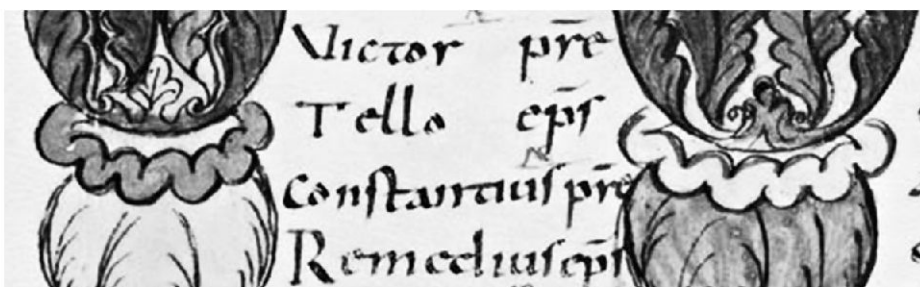 Victor p̄re
Tello ep̄s
Constantius p̄re
Remedius ep̄s